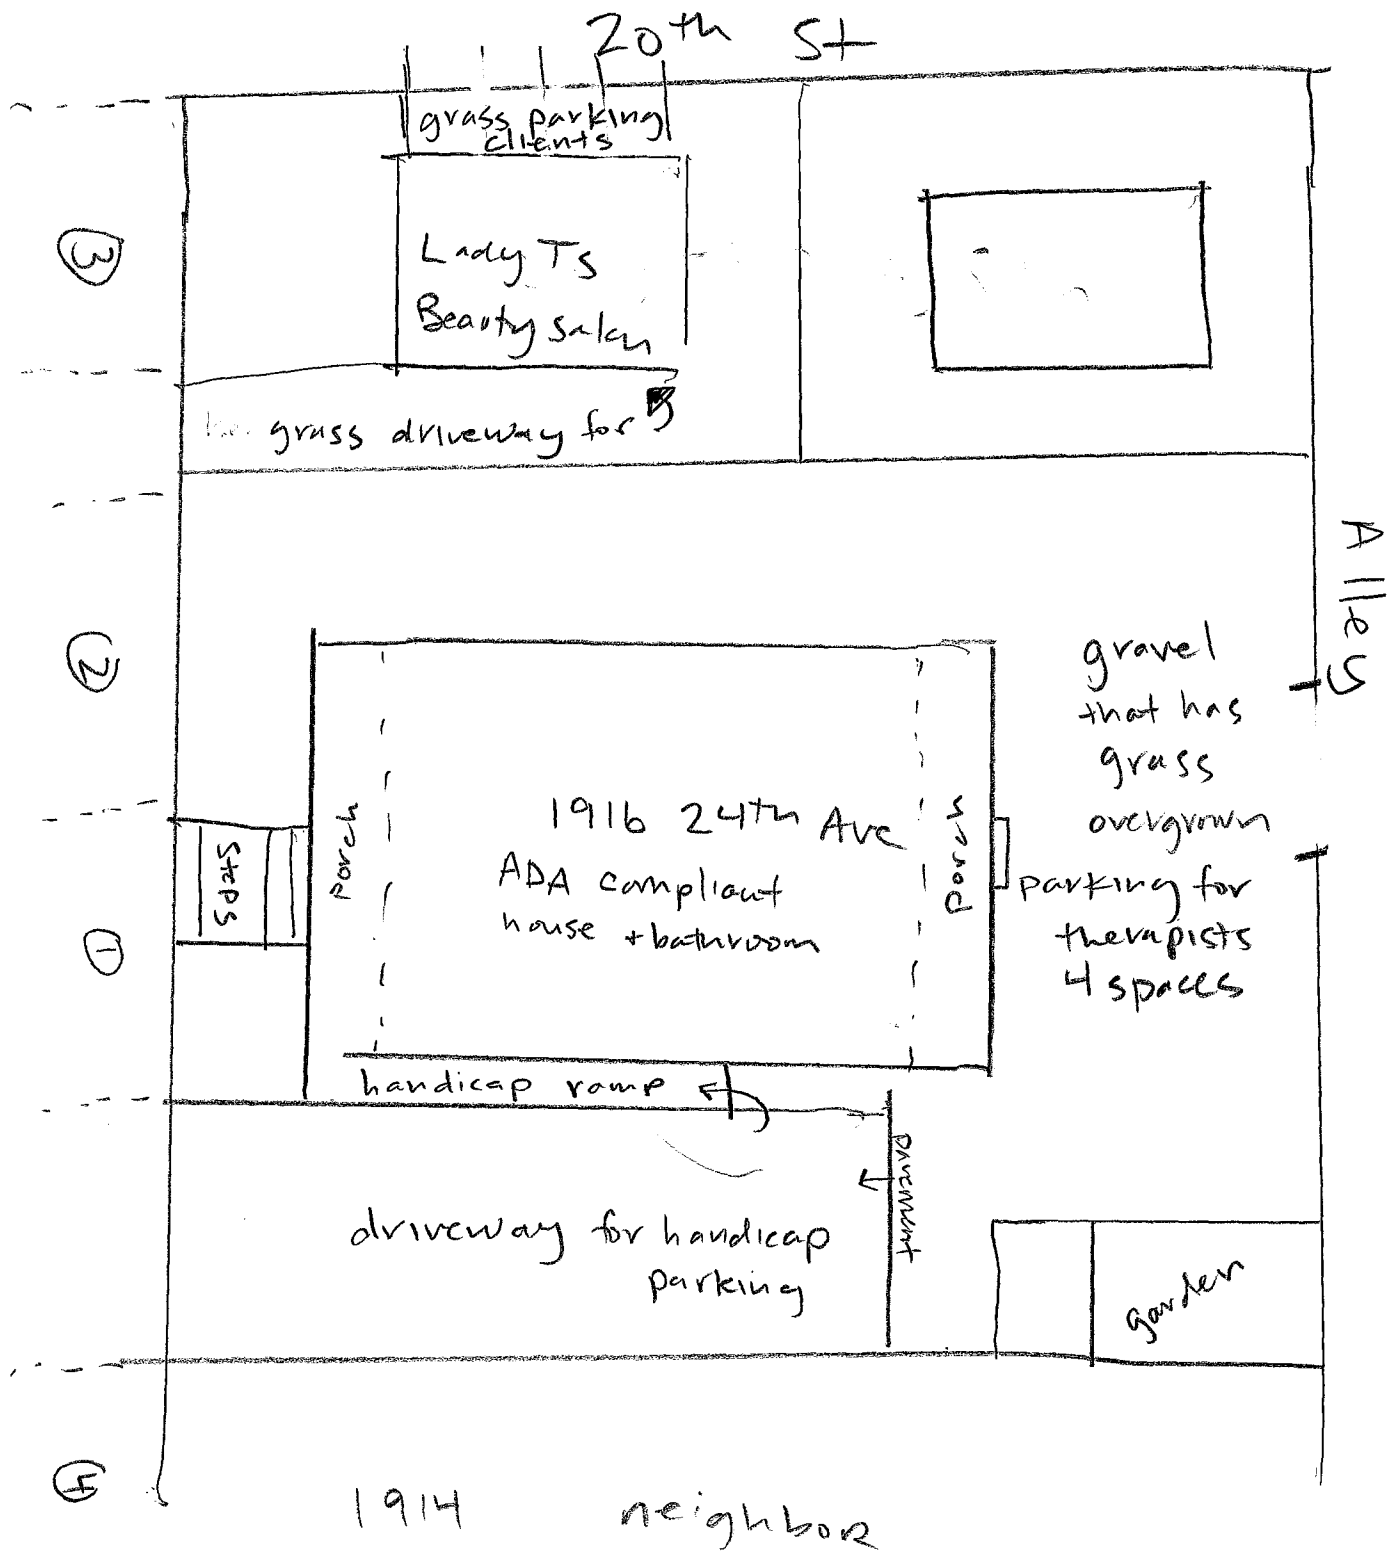 20th St
grass parking
clients
3
Lady Ts
Beauty Salon
grass driveway for
Alley
2
gravel
that has
grass
overgrown
parking for
therapists
4 spaces
porch
1916 24th Ave
ADA compliant
house + bathroom
porch
Steps
1
handicap ramp
pavement
driveway for handicap
parking
garden
4
1914 neighbor